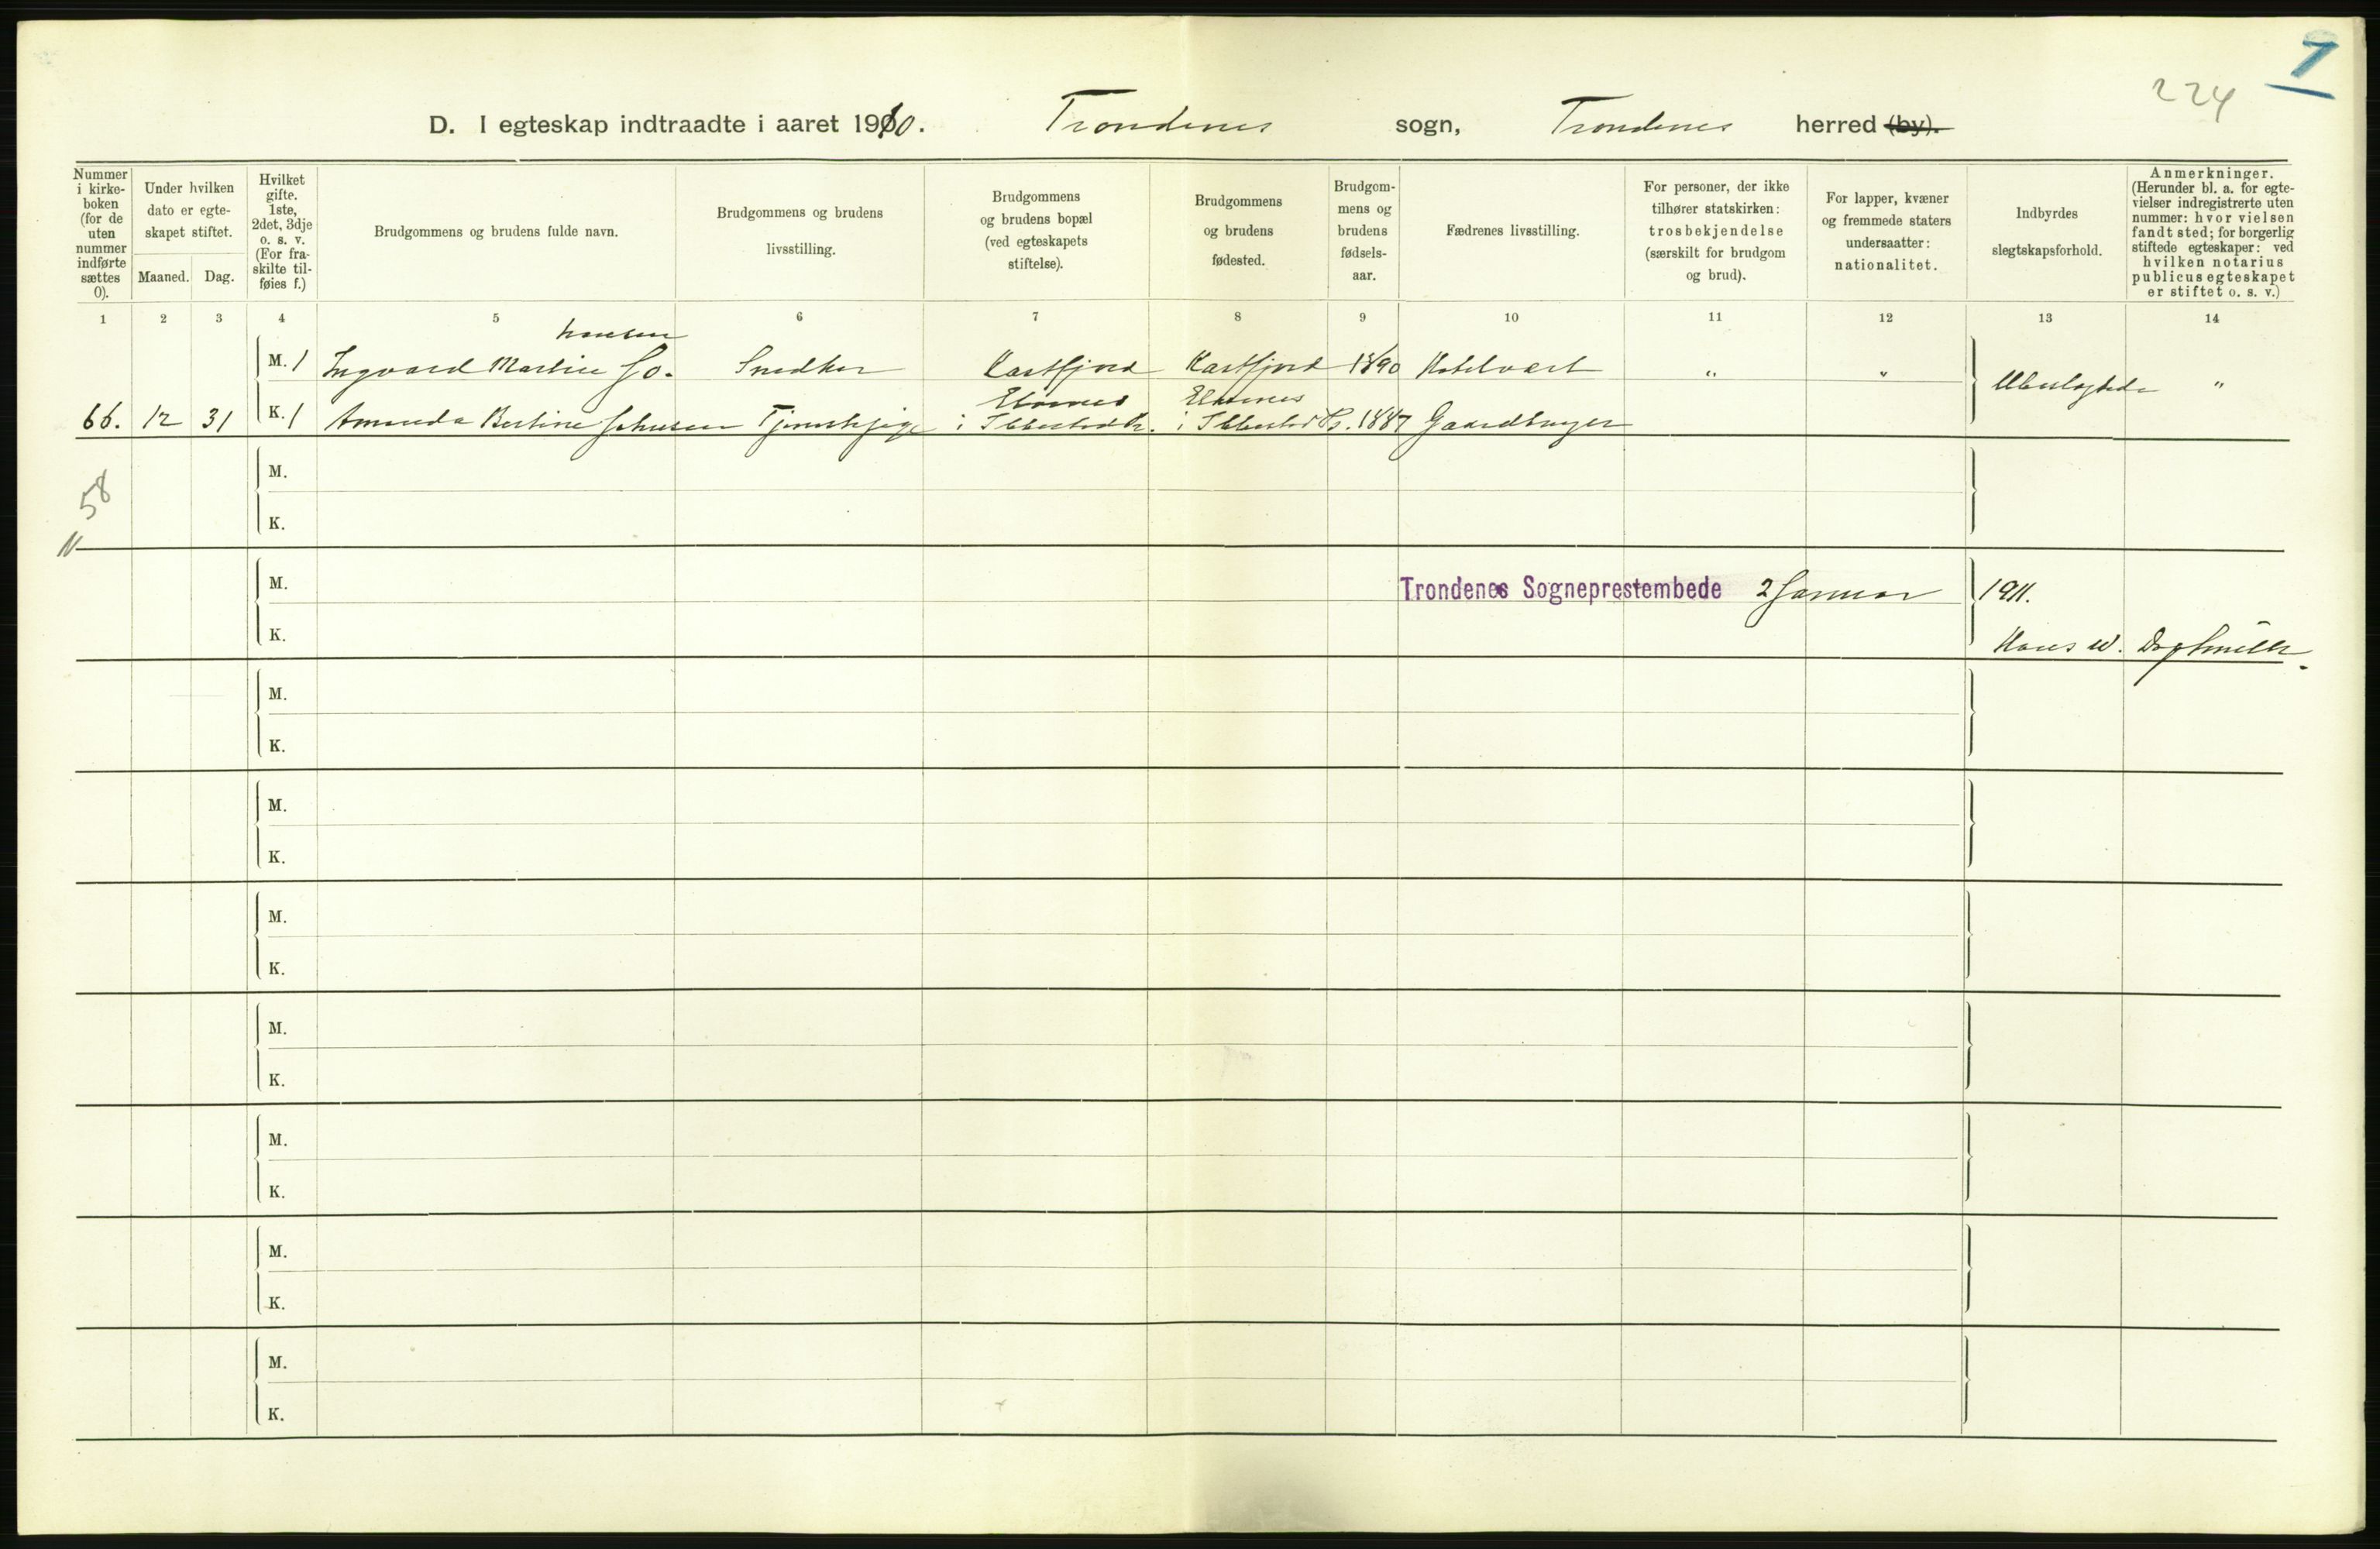 7
224
D. I egteskap indtraadte i aaret 1910. Trondenes sogn, Trondenes herred (by).
Nummer i kirke-boken (for de uten nummer indførte sættes 0).
Under hvilken dato er egte-skapet stiftet.
Maaned. Dag.
Hvilket gifte. 1ste, 2det, 3dje o. s. v. (For fra-skilte til-føies f.)
Brudgommens og brudens fulde navn.
Brudgommens og brudens livsstilling.
Brudgommens og brudens bopæl (ved egteskapets stiftelse).
Brudgommens og brudens fødested.
Brudgom-mens og brudens fødsels-aar.
Fædrenes livsstilling.
For personer, der ikke tilhører statskirken: trosbekjendelse (særskilt for brudgom og brud).
For lapper, kvæner og fremmede staters undersaatter: nationalitet.
Indbyrdes slegtskapsforhold.
Anmerkninger. (Herunder bl. a. for egte-vielser indregistrerte uten nummer: hvor vielsen fandt sted; for borgerlig stiftede egteskaper: ved hvilken notarius publicus egteskapet er stiftet o. s. v.)
1 2 3 4 5 6 7 8 9 10 11 12 13 14
M. 1 Ingvard Martin Jo-hansen Snedker Kastfjord Kastfjord 1890 " " "
66. 12 31 K. 1 Amanda Bertine Johnsen i Ibbestad i Ibbestad 1887 Gaardbruger
58
M.
K.
M.
Trondenes Sogneprestembede 2 Januar 1911.
K.
Hans W.
M.
K.
M.
K.
M.
K.
M.
K.
M.
K.
M.
K.
M.
K.